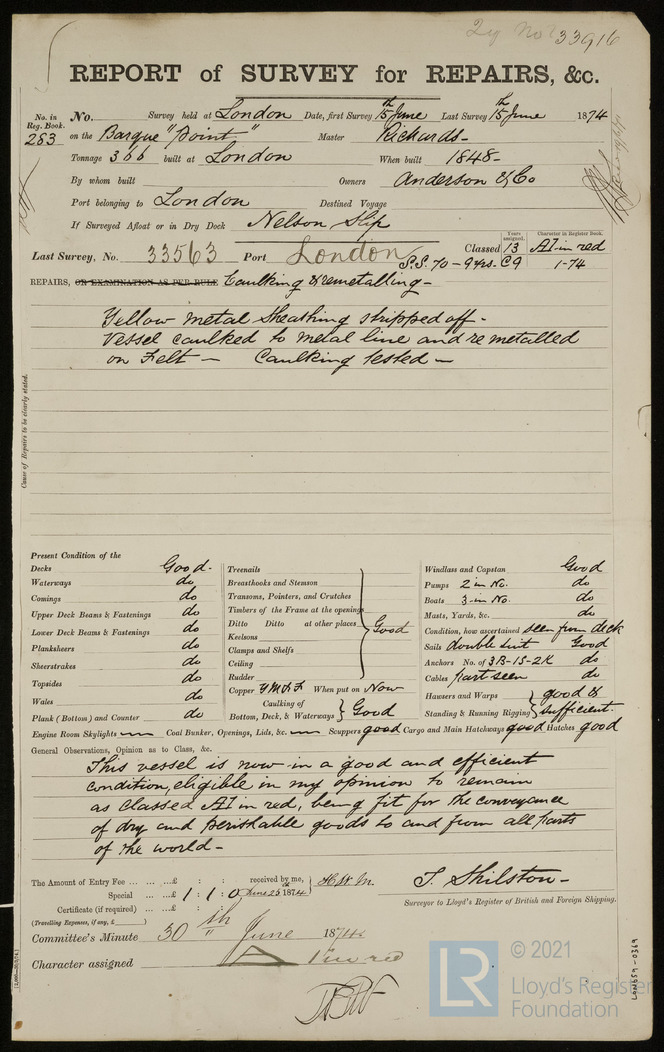 33916
REPORT of SURVEY for REPAIRS, &c.
No. in Reg. Book. No. Survey held at London Date, first Survey 15th June Last Survey 15th June 1874
283 on the Barque "Point" Master Rickards
Tonnage 366 built at London When built 1848
By whom built Owners Anderson & Co
Port belonging to London Destined Voyage
If Surveyed Afloat or in Dry Dock Nelson Slip
Years assigned. Character in Register Book.
Last Survey, No. 33563 Port London Classed 13 A1 in red
S.S. 70 - 9 yrs. C 9 1-74
REPAIRS, OR EXAMINATION AS PER RULE Caulking & remetalling -
Yellow metal sheathing stripped off -
Vessel caulked to metal line and remetalled
on Felt - Caulking tested -
Cause of Repairs to be clearly stated.
Present Condition of the
Decks Good.
Waterways do
Comings do
Upper Deck Beams & Fastenings do
Lower Deck Beams & Fastenings do
Planksheers do
Sheerstrakes do
Topsides do
Wales do
Plank (Bottom) and Counter do
Treenails
Breasthooks and Stemson
Transoms, Pointers, and Crutches
Timbers of the Frame at the openings
Ditto Ditto at other places
Good
Keelsons
Clamps and Shelfs
Ceiling
Rudder
Copper Y M & F When put on Now
Caulking of
Bottom, Deck, & Waterways Good
Windlass and Capstan Good
Pumps 2 in No. do
Boats 3 in No. do
Masts, Yards, &c. do
Condition, how ascertained seen from deck
Sails double suit Good
Anchors No. of 3B-1S-2K do
Cables part seen do
Hawsers and Warps good &
Standing & Running Rigging sufficient.
Engine Room Skylights Coal Bunker, Openings, Lids, &c. Scuppers good Cargo and Main Hatchways good Hatches good
General Observations, Opinion as to Class, &c.
This vessel is now in a good and efficient
condition, eligible in my opinion to remain
as classed A1 in red, being fit for the conveyance
of dry and perishable goods to and from all parts
of the world -
The Amount of Entry Fee ... ... ...£ : : received by me,
Special ... ...£ 1 : 1 : 0 June 25th 1874 H.W.M.
Certificate (if required) ... ...£ : :
(Travelling Expenses, if any, £ )
T. Shilston -
Surveyor to Lloyd's Register of British and Foreign Shipping.
Committee's Minute 30th June 1874
Character assigned A 1 in red
LR © 2021
Lloyd's Register
Foundation
LON659-0369